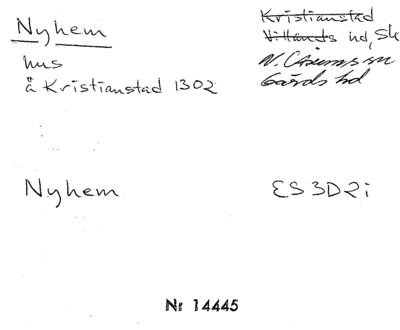 Nyhem
Kristianstad
Villands hd, Sk
hus
V.
sn
å Kristianstad 1302
Gärds hd
Nyhem
ES 3D2i
Nr 14445